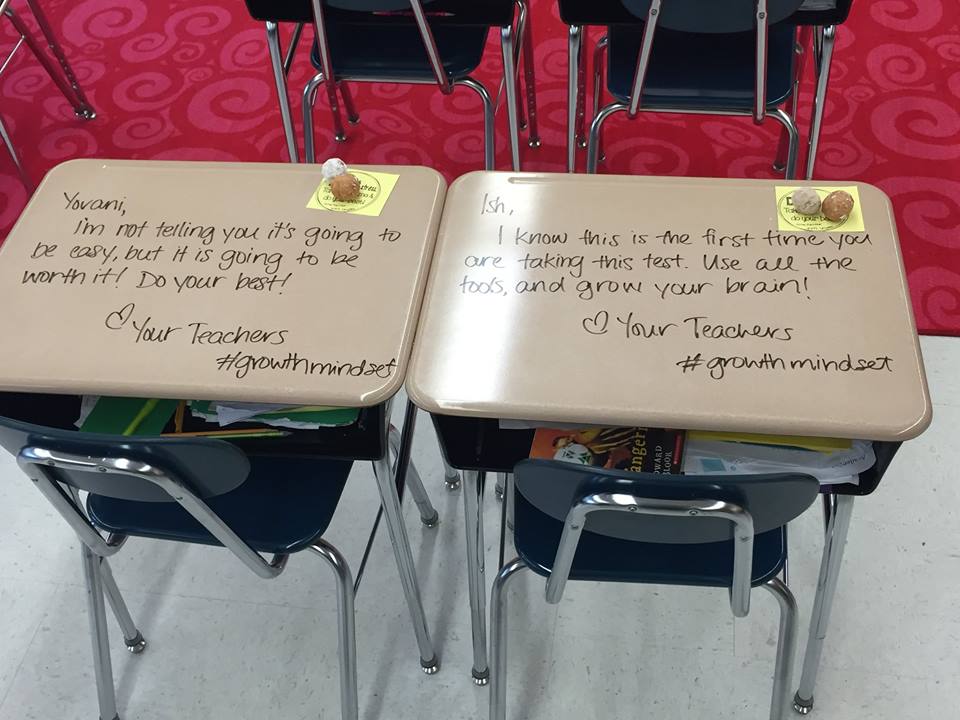 Yovani,
I'm not telling you it's going to
be easy, but it is going to be
worth it! Do your best!
♡ Your Teachers
#growthmindset
do your best!
Ish,
I know this is the first time you
are taking this test. Use all the
tools, and grow your brain!
♡ Your Teachers
#growthmindset
do your best!